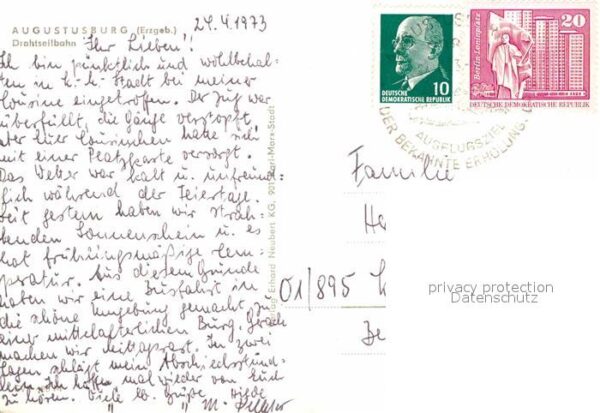 AUGUSTUSBURG (Erzgeb.)
Drahtseilbahn
24.4.1973
Ihr Lieben!
Ich bin pünktlich und wohlbehal-
ten in K.-M. Stadt bei meiner
Cousine eingetroffen. Der Zug war
überfüllt, die Gänge verstopft,
aber hier Cousinchen hatte sich
mit einer Platzkarte versorgt.
Das Wetter war kalt u. unfreund-
lich während der Feiertage.
Seit gestern haben wir strah-
lenden Sonnenschein u. es
hat frühlingsmäßige Tem-
peratur. Aus diesem Grunde
haben wir eine Busfahrt in
die schöne Umgebung gemacht, zu
einer mittelalterlichen Burg. Grad
machen wir Mittagsrast. In zwei
Tagen schlägt mein Abschiedsstünd-
lein. Ich hoffe mal wieder von Euch
zu hören. Viele lb. Grüße Hilde
" " M.
Verlag Erhard Neubert KG, 901 Karl-Marx-Stadt
10
DEUTSCHE
DEMOKRATISCHE REPUBLIK
Berlin-Leninplatz
20
DEUTSCHE DEMOKRATISCHE REPUBLIK
AUSFLUGSZIEL
DER BEKANNTE ERHOLUNGS
Familie
He
01/895
Be
privacy protection
Datenschutz